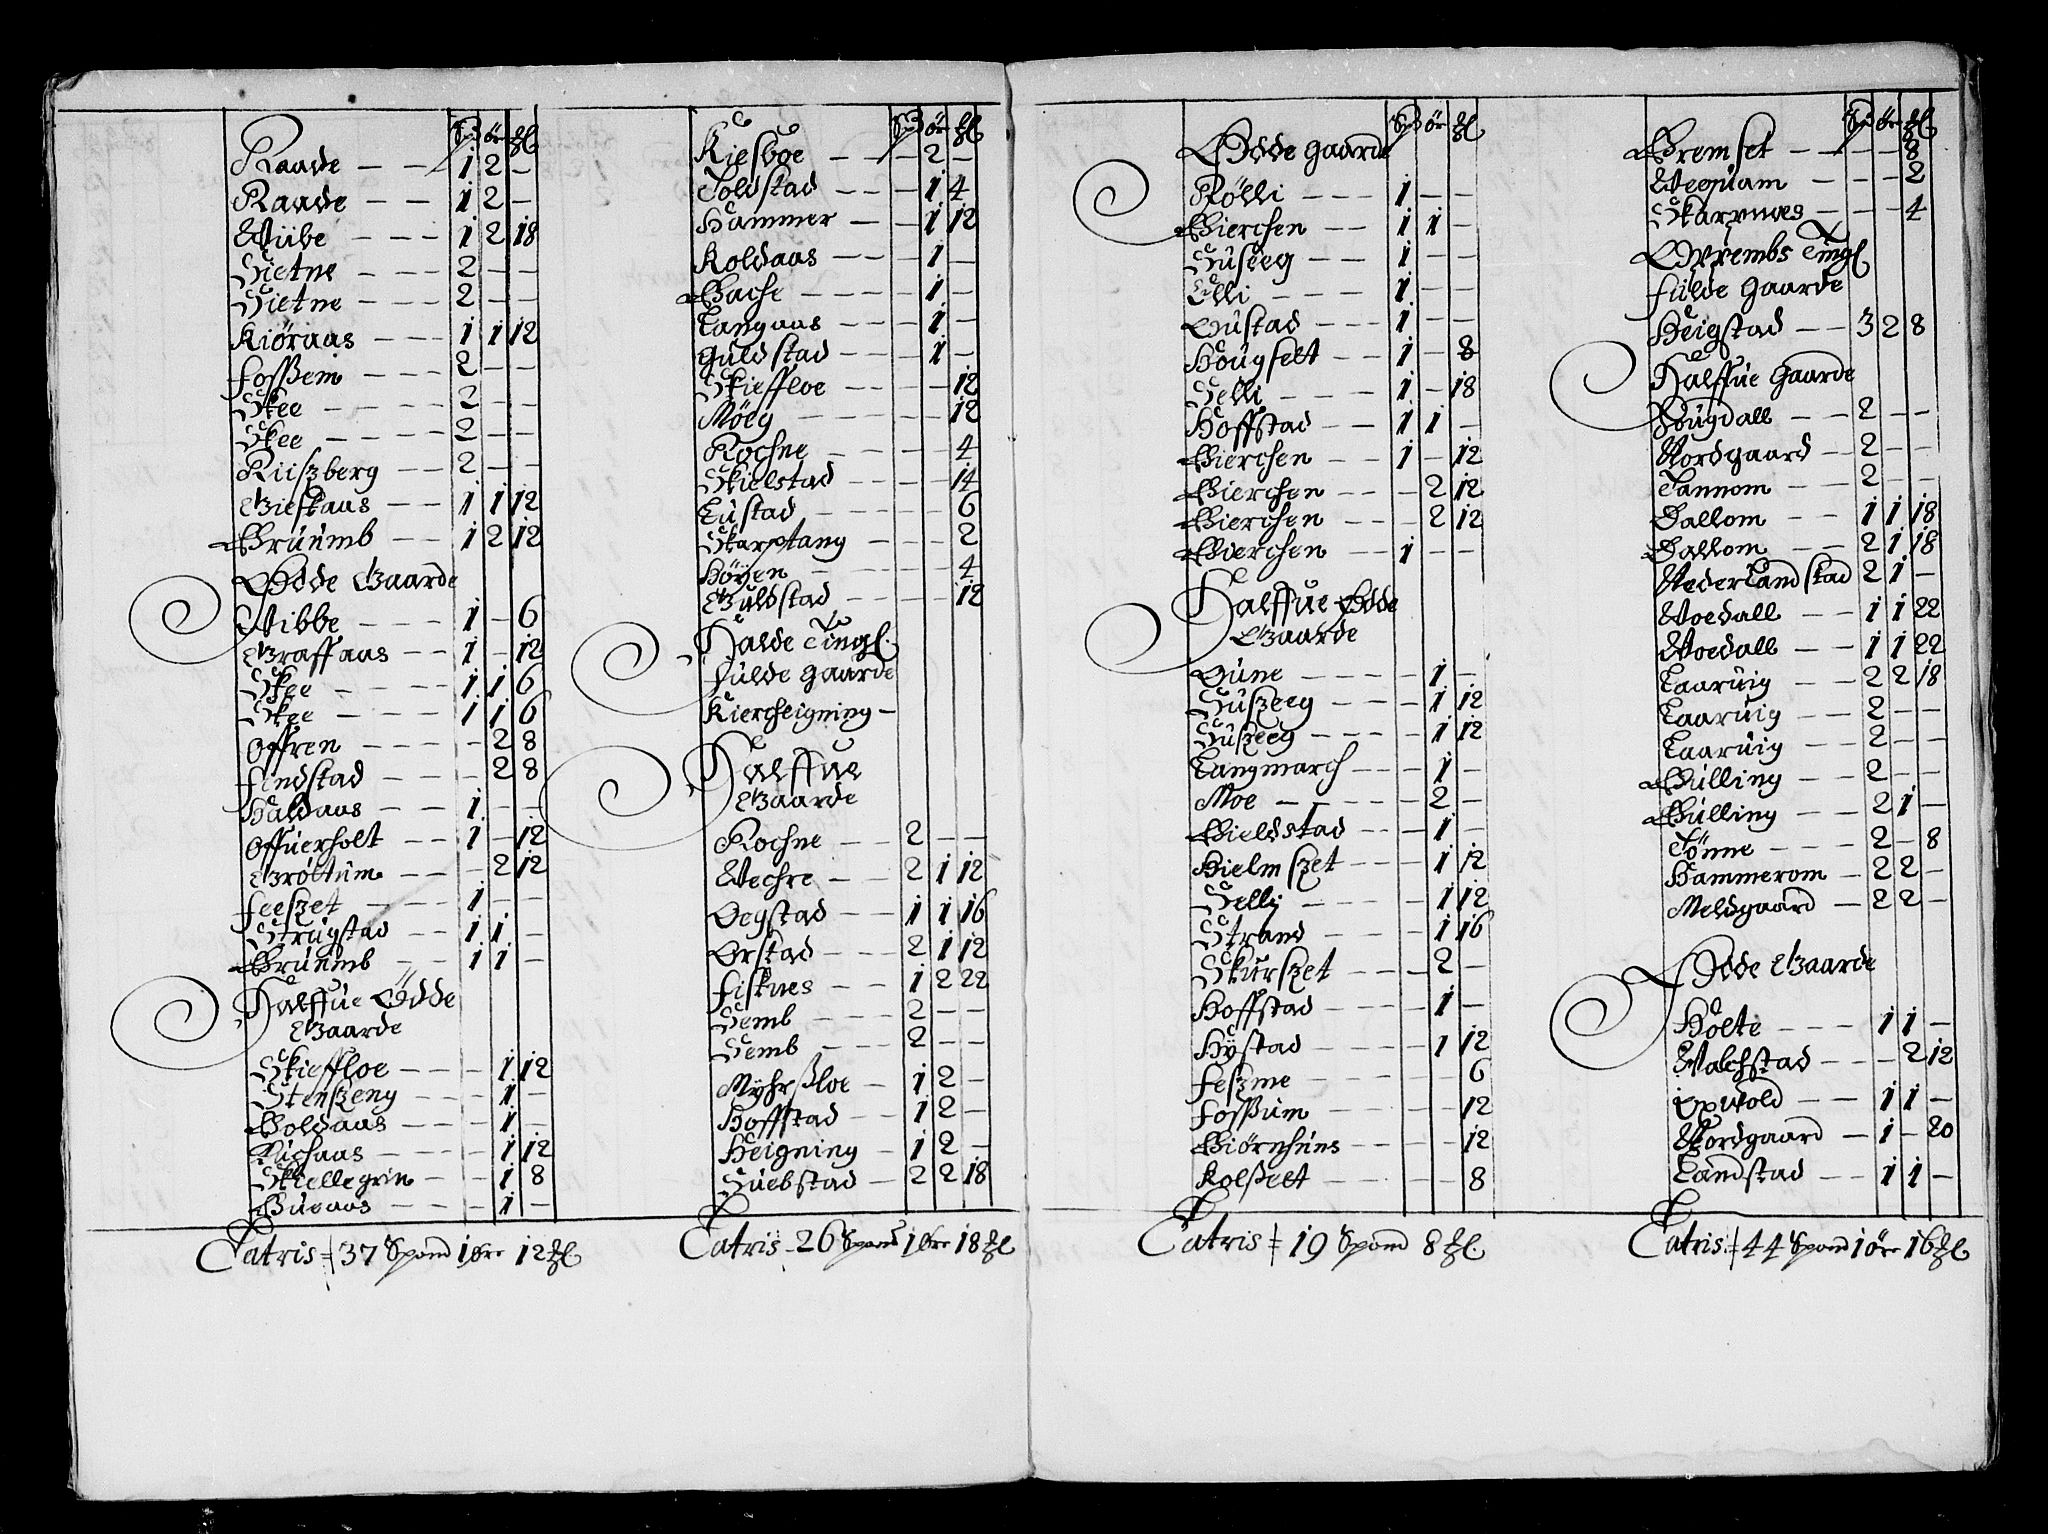 Spd ør ℔
Raade — — 1 2 —
Raade — — 1 2 —
Wiibe — — — 1 2 18
Sietne — — — 2 — —
Sietne — — — 2 — —
Kiøraas — — — 1 1 12
fossem — — — 2 — —
Skee — — — — 2 — —
Skee — — — — 2 — —
Riiszberg — — 2 — —
Gieskaas — — 1 1 12
Gruumb — — 1 2 12
Ødde Gaarde
Vibbe — — — 1 — 6
Graffaas — — 1 — 12
Skee — — — 1 1 6
Skee — — — 1 1 6
Offren — — — — 2 8
findstad — — — 2 8
Haldaas — — 1 — —
Offuerholt — — 1 — 12
Grøttum — — — 2 12
feeszet — — — 1 — —
Strugstad — — 1 1 —
Gruumb — — 1 1 —
Halffue Ødde
Gaarde
Skieffloe — — — — 1 12
Stenszeng — — — 1 —
Woldaas — — — — 1 —
Ruchaas — — — — 1 12
Skiellegrin — — — 1 8
Bueaas — — — — 1 —
Latris 37 Spand 1 øre 12 ℔
Spd ør ℔
Kiesboe — — — 2 —
Toldstad — — — 1 4
Hammer — — 1 12
Koldaas — — — 1 —
Bache — — — — 1 —
Langaas — — — 1 —
Guldstad — — — 1 —
Skieffloe — — — — 12
Møeg — — — — — 12
Rochne — — — — 4
Skielstad — — — — 14
Lustad — — — — — 6
Skarptang — — — 2
Høyen — — — — — 4
Guldstad — — — — 12
Halde Tingl.
fulde Gaarde
Kiercheigning —
Halffue
Gaarde
Rochne — — — 2 — —
Vechre — — 2 1 12
Oegstad — — 1 1 16
Ørstad — — 2 1 12
fisknes — — 1 2 22
Semb — — — 2 — —
Semb — — — 2 — —
Myhrsloe — 1 2 —
Hoffstad — — 1 2 —
Heigning — 1 2 —
Suebstad — — 2 2 18
Latris 26 Spand 1 øre 18 ℔
Spd ør ℔
Ødde Gaarde
Rølli — — — 1 — —
Bierchen — — 1 1 —
Suseeg — — 1 — —
Elli — — — — 1 — —
Oustad — — — 1 — —
Hougselt — — 1 — 8
Selli — — — — 1 — 18
Hoffstad — — 1 1 —
Bierchen — — 1 — 12
Bierchen — — — 2 12
Bierchen — — — 2 12
Bierchen — — 1 — —
Halffue Ødde
Gaarde
Oune — — — — 1 —
Suszeeg — — — 1 12
Suszeeg — — — — 1 12
Langmarch — — — 1 —
Moe — — — — — 2 —
Gieldstad — — — 1 —
Hielmszet — — — 1 12
Selli — — — — 1 12
Strand — — — — 1 16
Skurszet — — — 2 —
Hoffstad — — — — 1 —
Hystad — — — — 1 12
feszme — — — — — 6
fossum — — — — — 12
Biørnhuus — — — — 12
Kolselt — — — — — 8
Latris 19 Spand 8 ℔
Spd ør ℔
Bremset — — — — 8
Weguam — — — 2
Skarpnæs — — — 4
Øyrembs Tingl.
fulde Gaarde
Heigstad — — 3 2 8
Halffue Gaarde
Hougdall — — 2 — —
Nordgaard — 2 — —
Tannom — — — 2 — —
Dallom — — 1 1 18
Dallom — — 2 1 18
Nederlandstad 2 1 —
Woedall — — 1 1 22
Woedall — — 1 1 22
Laaruig — — 2 2 18
Laaruig — — 2 — —
Laaruig — — 2 — —
Gulling — — 2 — —
Gulling — — 2 1 —
Tønne — — — 2 — 8
Hammerom — 2 2 —
Meldgaard — 2 2 —
Ødde Gaarde
Holte — — — 1 1 —
Walchstad — — — 2 12
Opwold — — 1 1 —
Nordgaard — 1 — 20
Landstad — — 1 1 —
Latris 44 Spand 1 øre 16 ℔